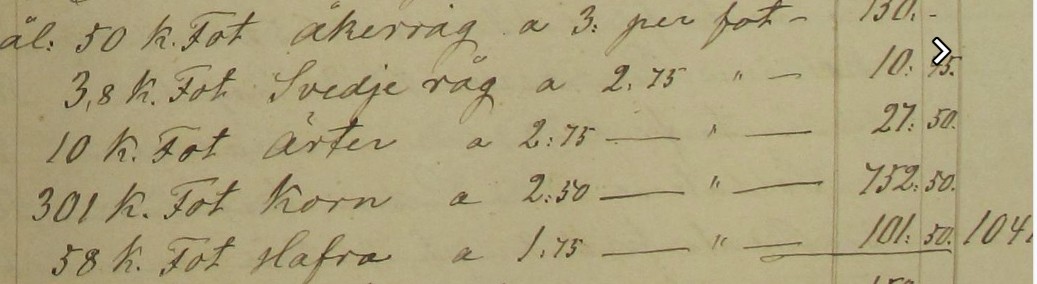 äl: 50 k. Fot åkerråg a 3: per fot - 150. -
3,8 k. Fot Svedje råg a 2.75 " — 10: 45.
10 k. Fot ärter a 2:75 — " — 27: 50.
301 k. Fot Korn a 2:50 — " — 752: 50.
58 k. Fot Hafra a 1.75 — " — 101: 50. 104